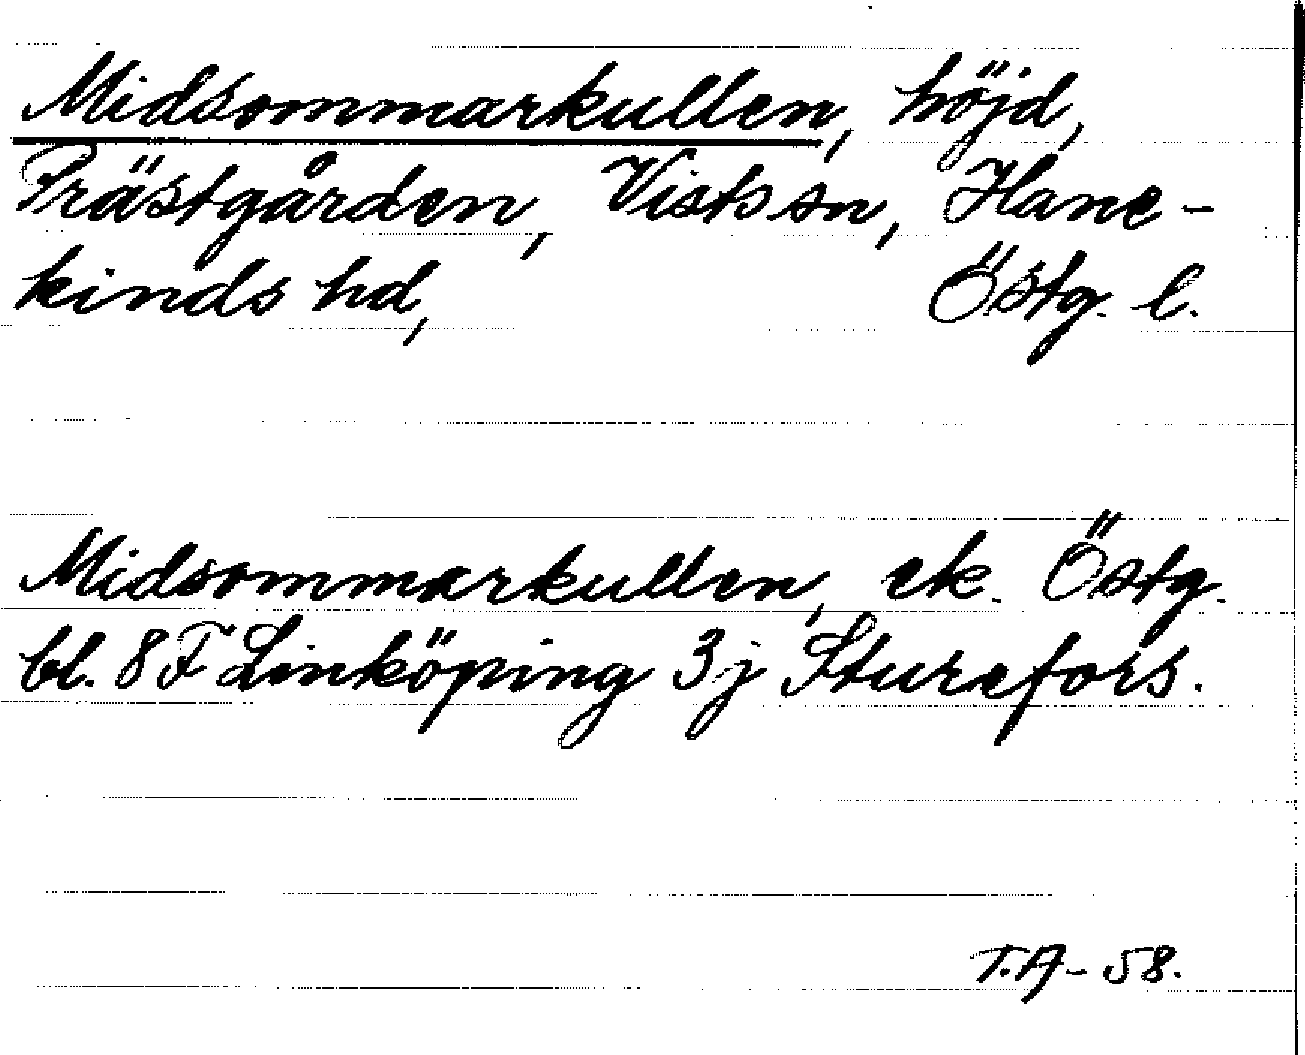 Midsommarkullen, höjd,
Prästgården, Vists sn, Hane-
kinds hd, Östg. l.
Midsommarkullen, ek. Östg.
bl. 8 F Linköping 3j Sturefors.
T.A - 58.